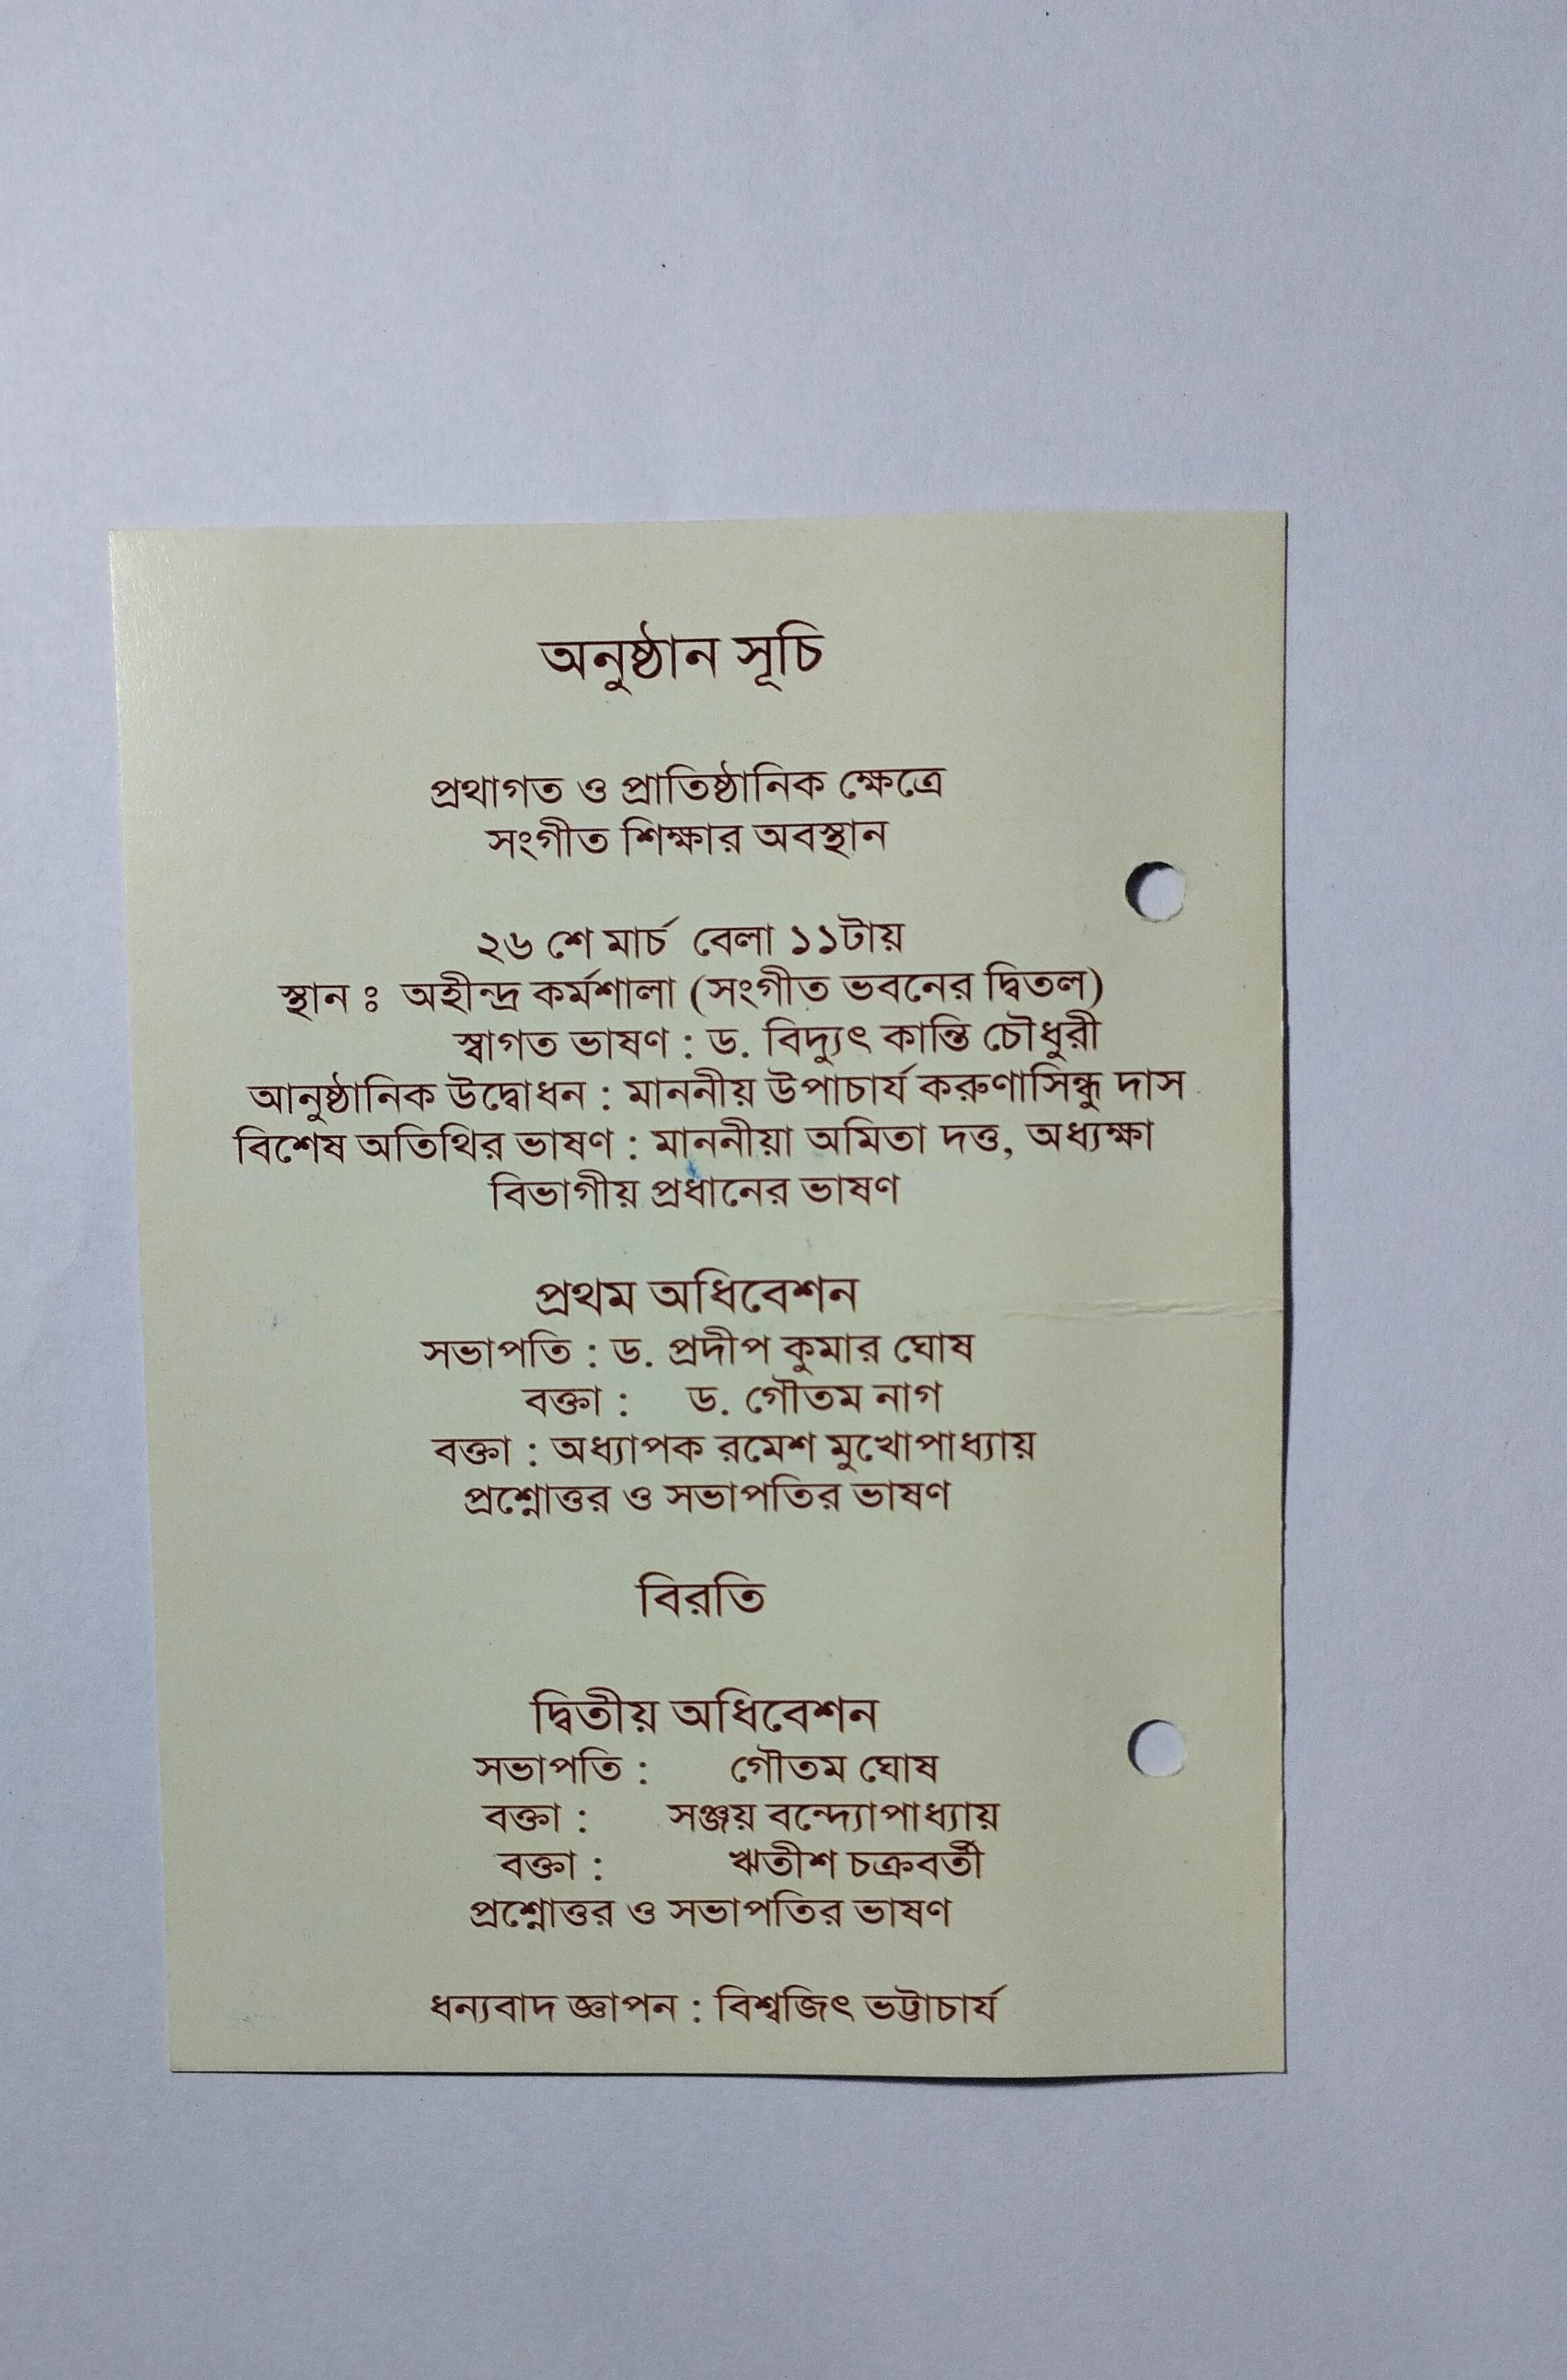 অনুষ্ঠান সূচি
প্রথাগত ও প্রাতিষ্ঠানিক ক্ষেত্রে
সংগীত শিক্ষার অবস্থান
২৬ শে মার্চ বেলা ১১টায়
স্থান ঃ অহীন্দ্র কর্মশালা (সংগীত ভবনের দ্বিতল)
স্বাগত ভাষণ : ড. বিদ্যুৎ কান্তি চৌধুরী
আনুষ্ঠানিক উদ্বোধন : মাননীয় উপাচার্য করুণাসিন্ধু দাস
বিশেষ অতিথির ভাষণ : মাননীয়া অমিতা দত্ত, অধ্যক্ষা
বিভাগীয় প্রধানের ভাষণ
প্রথম অধিবেশন
সভাপতি : ড. প্রদীপ কুমার ঘোষ
বক্তা : ড. গৌতম নাগ
বক্তা : অধ্যাপক রমেশ মুখোপাধ্যায়
প্রশ্নোত্তর ও সভাপতির ভাষণ
বিরতি
দ্বিতীয় অধিবেশন
সভাপতি : গৌতম ঘোষ
বক্তা : সঞ্জয় বন্দ্যোপাধ্যায়
বক্তা : ঋতীশ চক্রবর্তী
প্রশ্নোত্তর ও সভাপতির ভাষণ
ধন্যবাদ জ্ঞাপন : বিশ্বজিৎ ভট্টাচার্য